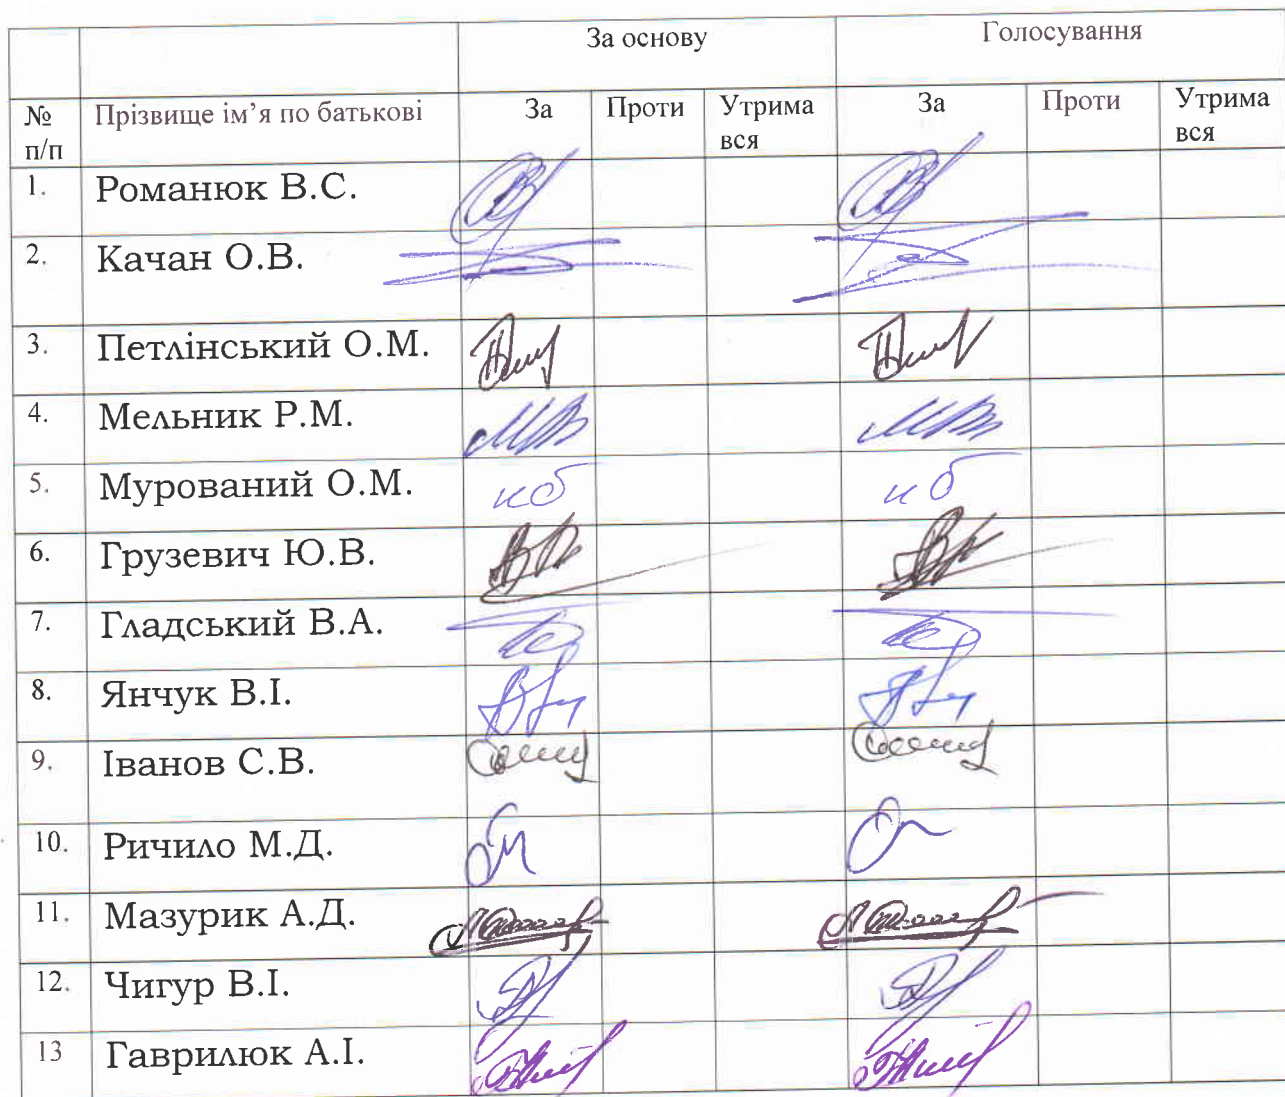 За основу Голосування
№ п/п Прізвище ім’я по батькові За Проти Утримався За Проти Утримався
1. Романюк В.С.
2. Качан О.В.
3. Петлінський О.М.
4. Мельник Р.М.
5. Мурований О.М.
6. Грузевич Ю.В.
7. Гладський В.А.
8. Янчук В.І.
9. Іванов С.В.
10. Ричило М.Д.
11. Мазурик А.Д.
12. Чигур В.І.
13 Гаврилюк А.І.